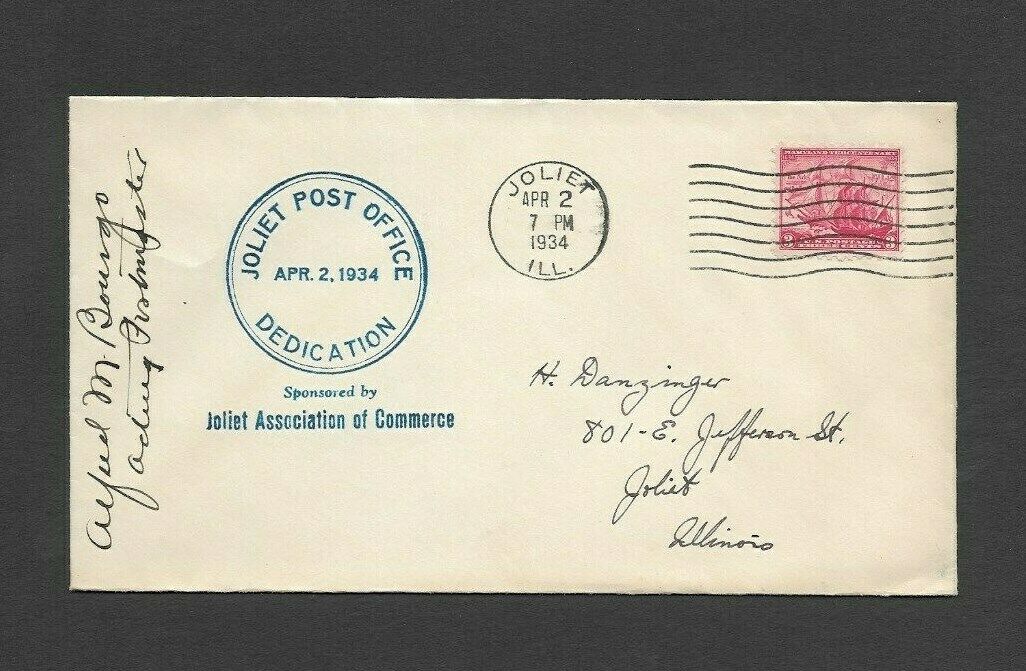 Alfred M. Bourgo
Acting Postmaster
JOLIET POST OFFICE
APR. 2, 1934
DEDICATION
Sponsored by
Joliet Association of Commerce
JOLIET
APR 2
7 PM
1934
ILL.
3 U.S. POSTAGE 3
THREE CENTS
H. Danzinger
801-E. Jefferson St.
Joliet
Illinois